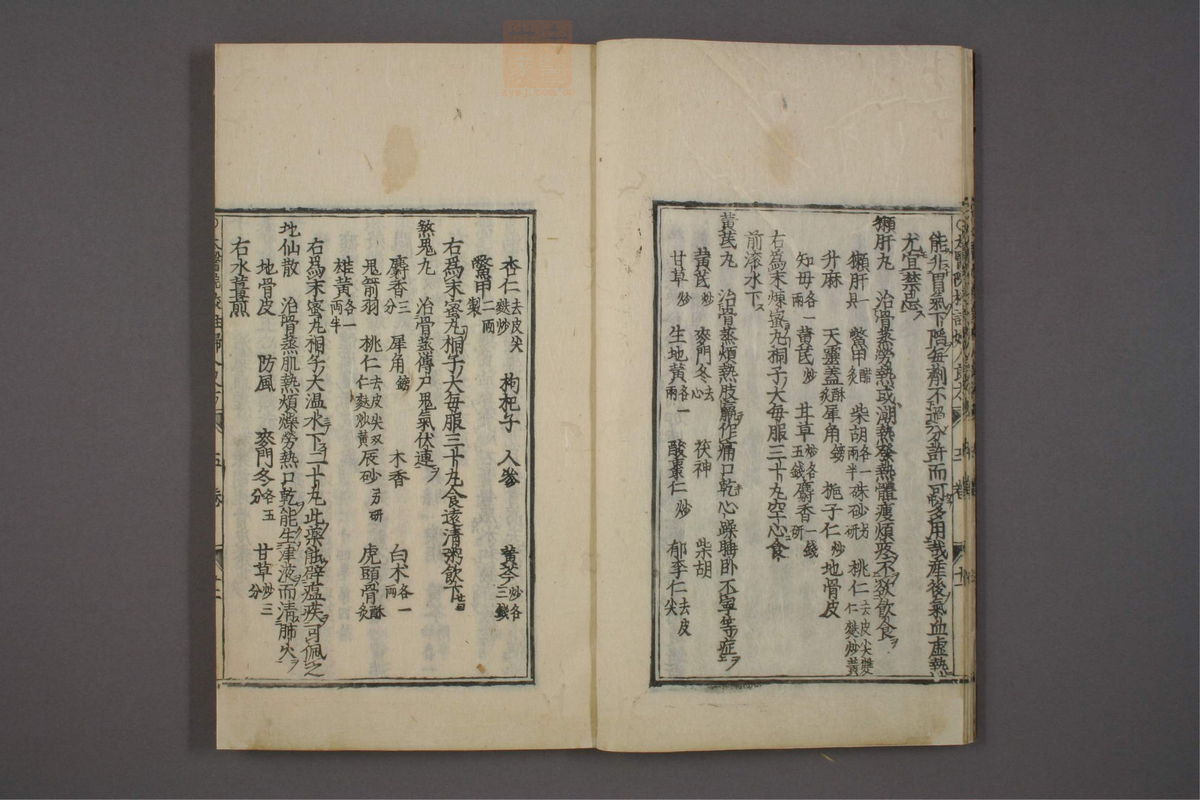 能升胃氣下陷每劑不過分許而可多用哉産後氣血虛熱
尤宜禁忌
獺肝丸　治骨蒸勞熱或潮熱發熱體瘦煩疼不欲飲食
獺肝一具　鱉甲醋炙　柴胡各一兩半　硃砂研　桃仁去皮尖雙仁麩炒黃
升麻　天靈蓋酥炙　犀角鎊　梔子仁炒　地骨皮
知母各一兩　黃芪炒　甘草炒各五錢　麝香一錢研
右為末煉蜜丸桐子大每服三十丸空心食
前滚水下
黃芪丸　治骨蒸煩熱肢體作痛口乾心躁睡卧不寧等症
黃芪炒　麥門冬去心　茯神　柴胡
甘草炒　生地黃各一兩　酸棗仁炒　郁李仁去皮尖
杏仁去皮尖麩炒　枸杞子　人參　黃芩炒各三錢
鱉甲二兩製
右爲末蜜丸桐子大每服三十丸食遠清粥飲下
煞鬼丸　治骨蒸傳尸鬼氣伏連
麝香三分　犀角鎊　木香　白术各一兩
鬼箭羽　桃仁去皮尖双仁麩炒黃　辰砂另研　虎頭骨酥炙
雄黃各一兩半
右爲末蜜丸桐子大温水下二十丸此藥能辟瘟疾可佩之
地仙散　治骨蒸肌熱煩燥勞熱口乾能生津液而清肺火
地骨皮　防風　麥門冬各五分　甘草炒三分
右水煎